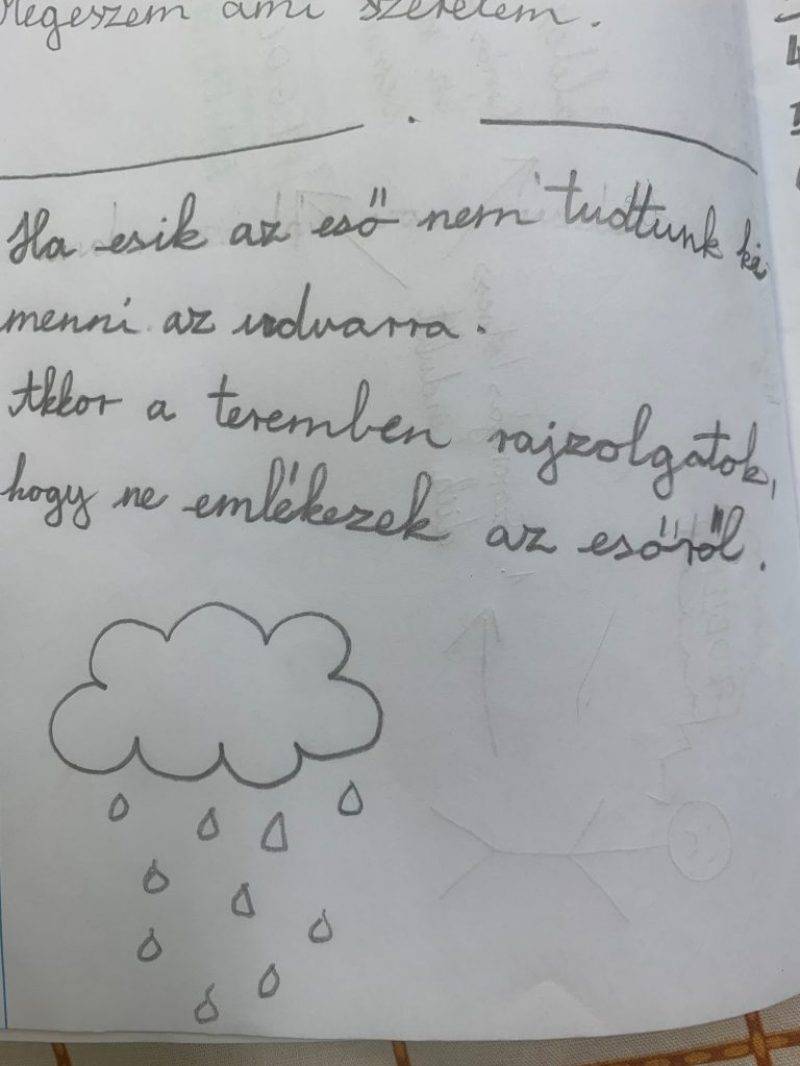 Megeszem ami szeretem.
Ha esik az eső nem tudtunk ki
menni az udvarra.
Akkor a teremben rajzolgatok,
hogy ne emlékezek az esőről.